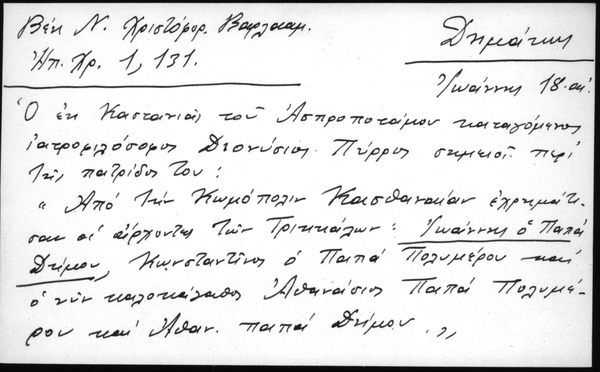 Βέη Ν. Χριστόφορ. Βαρλααμ.
Ἠπ. Χρ. 1, 131.
Δημάκης
Ἰωάννης 18. αἰ.
Ὁ ἐκ Καστανιᾶς τοῦ Ἀσπροποτάμου καταγόμενος
ἰατροφιλόσοφος Διονύσιος Πύρρος σημειοῖ περὶ
τῆς πατρίδος του:
"Ἀπὸ τὴν Κωμόπολιν Κασθαναίαν ἐχρημάτι-
σαν οἱ ἄρχοντες τῶν Τρικκάλων: Ἰωάννης ὁ Παπᾶ
Δήμου, Κωνσταντῖνος ὁ Παπᾶ Πολυμέρου καὶ
ὁ νῦν καλοκάγαθος Ἀθανάσιος Παπᾶ Πολυμέ-
ρου καὶ Ἀθαν. παπᾶ Δήμου.,,